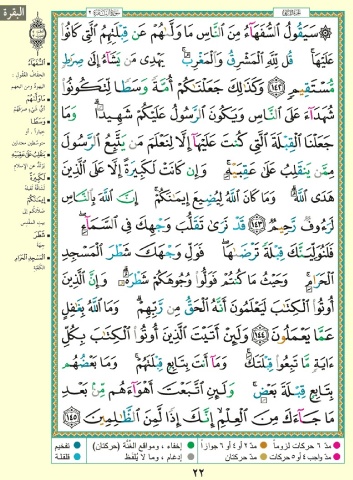 البقرة
سَيَقُولُ السُّفَهَاءُ مِنَ النَّاسِ مَا وَلَّىٰهُمْ عَن قِبْلَتِهِمُ الَّتِي كَانُوا
عَلَيْهَا قُل لِّلَّهِ الْمَشْرِقُ وَالْمَغْرِبُ يَهْدِي مَن يَشَاءُ إِلَىٰ صِرَٰطٍ
مُّسْتَقِيمٍ ١٤٢ وَكَذَٰلِكَ جَعَلْنَٰكُمْ أُمَّةً وَسَطًا لِّتَكُونُوا
شُهَدَاءَ عَلَى النَّاسِ وَيَكُونَ الرَّسُولُ عَلَيْكُمْ شَهِيدًا وَمَا
جَعَلْنَا الْقِبْلَةَ الَّتِي كُنتَ عَلَيْهَا إِلَّا لِنَعْلَمَ مَن يَتَّبِعُ الرَّسُولَ
مِمَّن يَنقَلِبُ عَلَىٰ عَقِبَيْهِ وَإِن كَانَتْ لَكَبِيرَةً إِلَّا عَلَى الَّذِينَ
هَدَى اللَّهُ وَمَا كَانَ اللَّهُ لِيُضِيعَ إِيمَٰنَكُمْ إِنَّ اللَّهَ بِالنَّاسِ
لَرَءُوفٌ رَّحِيمٌ ١٤٣ قَدْ نَرَىٰ تَقَلُّبَ وَجْهِكَ فِي السَّمَاءِ
فَلَنُوَلِّيَنَّكَ قِبْلَةً تَرْضَىٰهَا فَوَلِّ وَجْهَكَ شَطْرَ الْمَسْجِدِ
الْحَرَامِ وَحَيْثُ مَا كُنتُمْ فَوَلُّوا وُجُوهَكُمْ شَطْرَهُ وَإِنَّ الَّذِينَ
أُوتُوا الْكِتَٰبَ لَيَعْلَمُونَ أَنَّهُ الْحَقُّ مِن رَّبِّهِمْ وَمَا اللَّهُ بِغَٰفِلٍ
عَمَّا يَعْمَلُونَ ١٤٤ وَلَئِنْ أَتَيْتَ الَّذِينَ أُوتُوا الْكِتَٰبَ بِكُلِّ
ءَايَةٍ مَّا تَبِعُوا قِبْلَتَكَ وَمَا أَنتَ بِتَابِعٍ قِبْلَتَهُمْ وَمَا بَعْضُهُم
بِتَابِعٍ قِبْلَةَ بَعْضٍ وَلَئِنِ اتَّبَعْتَ أَهْوَاءَهُم مِّن بَعْدِ
مَا جَاءَكَ مِنَ الْعِلْمِ إِنَّكَ إِذًا لَّمِنَ الظَّٰلِمِينَ ١٤٥
السُّفَهَاءُ
مَا وَلَّاهُمْ
وَسَطًا
يَنقَلِبُ عَلَى عَقِبَيْهِ
لَكَبِيرَةً
إِيمَانَكُمْ
شَطْرَ
المَسْجِدِ الحَرَامِ
الكعبة
مدّ ٦ حركات لزوماً مدّ ٢ أو ٤ أو ٦ جوازاً إخفاء، ومواقع الغُنَّة (حركتان) تفخيم
مدّ واجب ٤ أو ٥ حركات مدّ حركتان إدغام، وما لا يُلفَظ قلقلة
٢٢